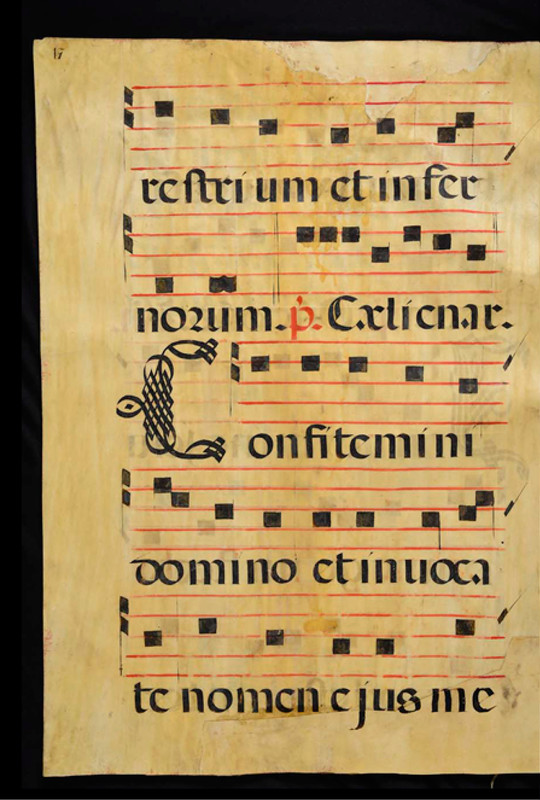 17
restri um et in fer
norum. p. Cæli enar.
Confitemini
domino et inuoca
te nomen ejus me